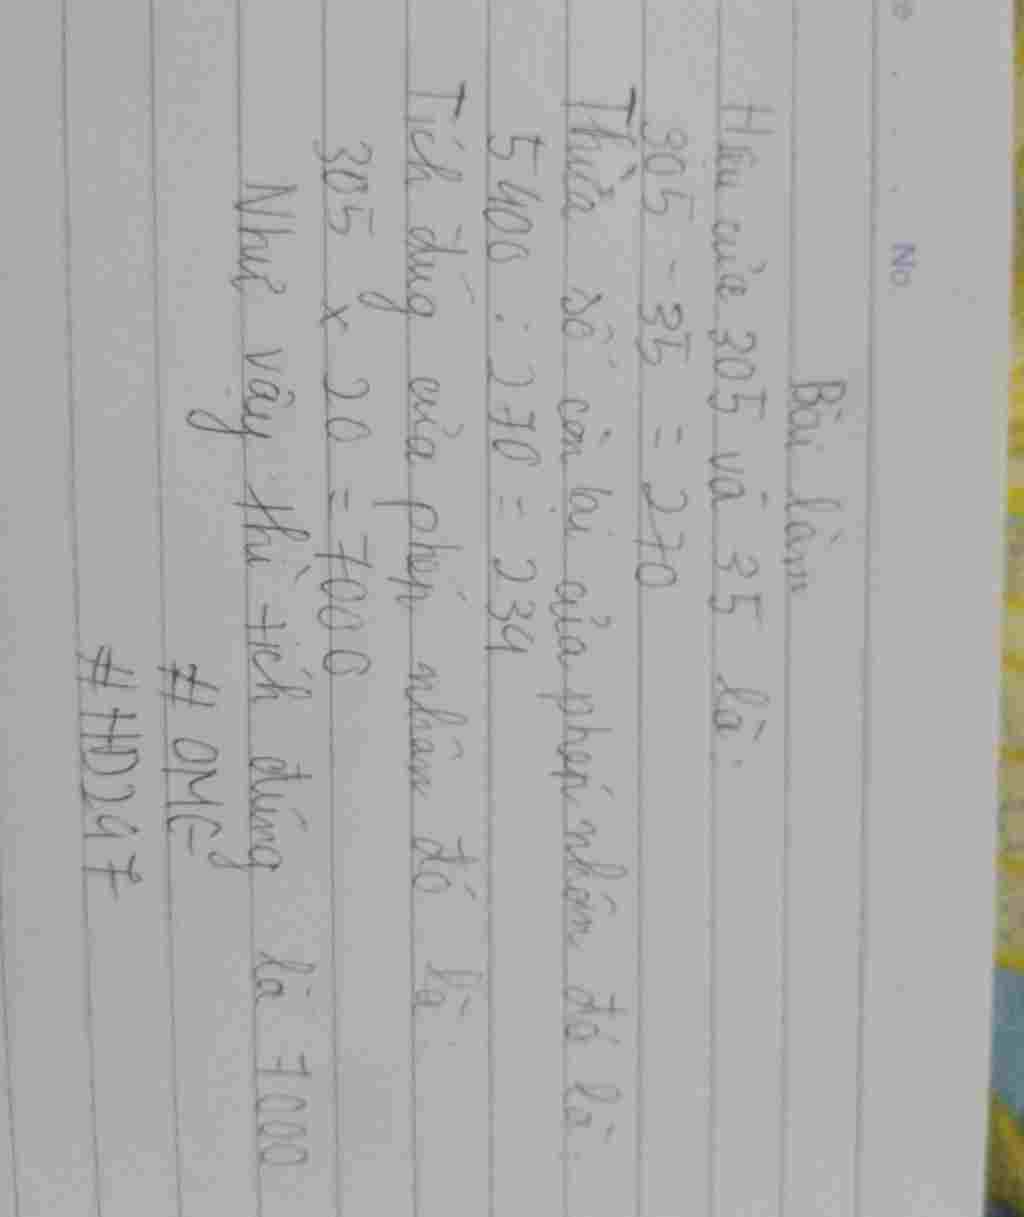 No
Bài làm
Hiệu của 305 và 35 là:
305 - 35 = 270
Thừa số còn lại của phép nhân đó là:
5400 : 270 = 234
Tích đúng của phép nhân đó là:
305 x 20 = 7000
Như vậy thì tích đúng là 7000
# OMG
#HD247